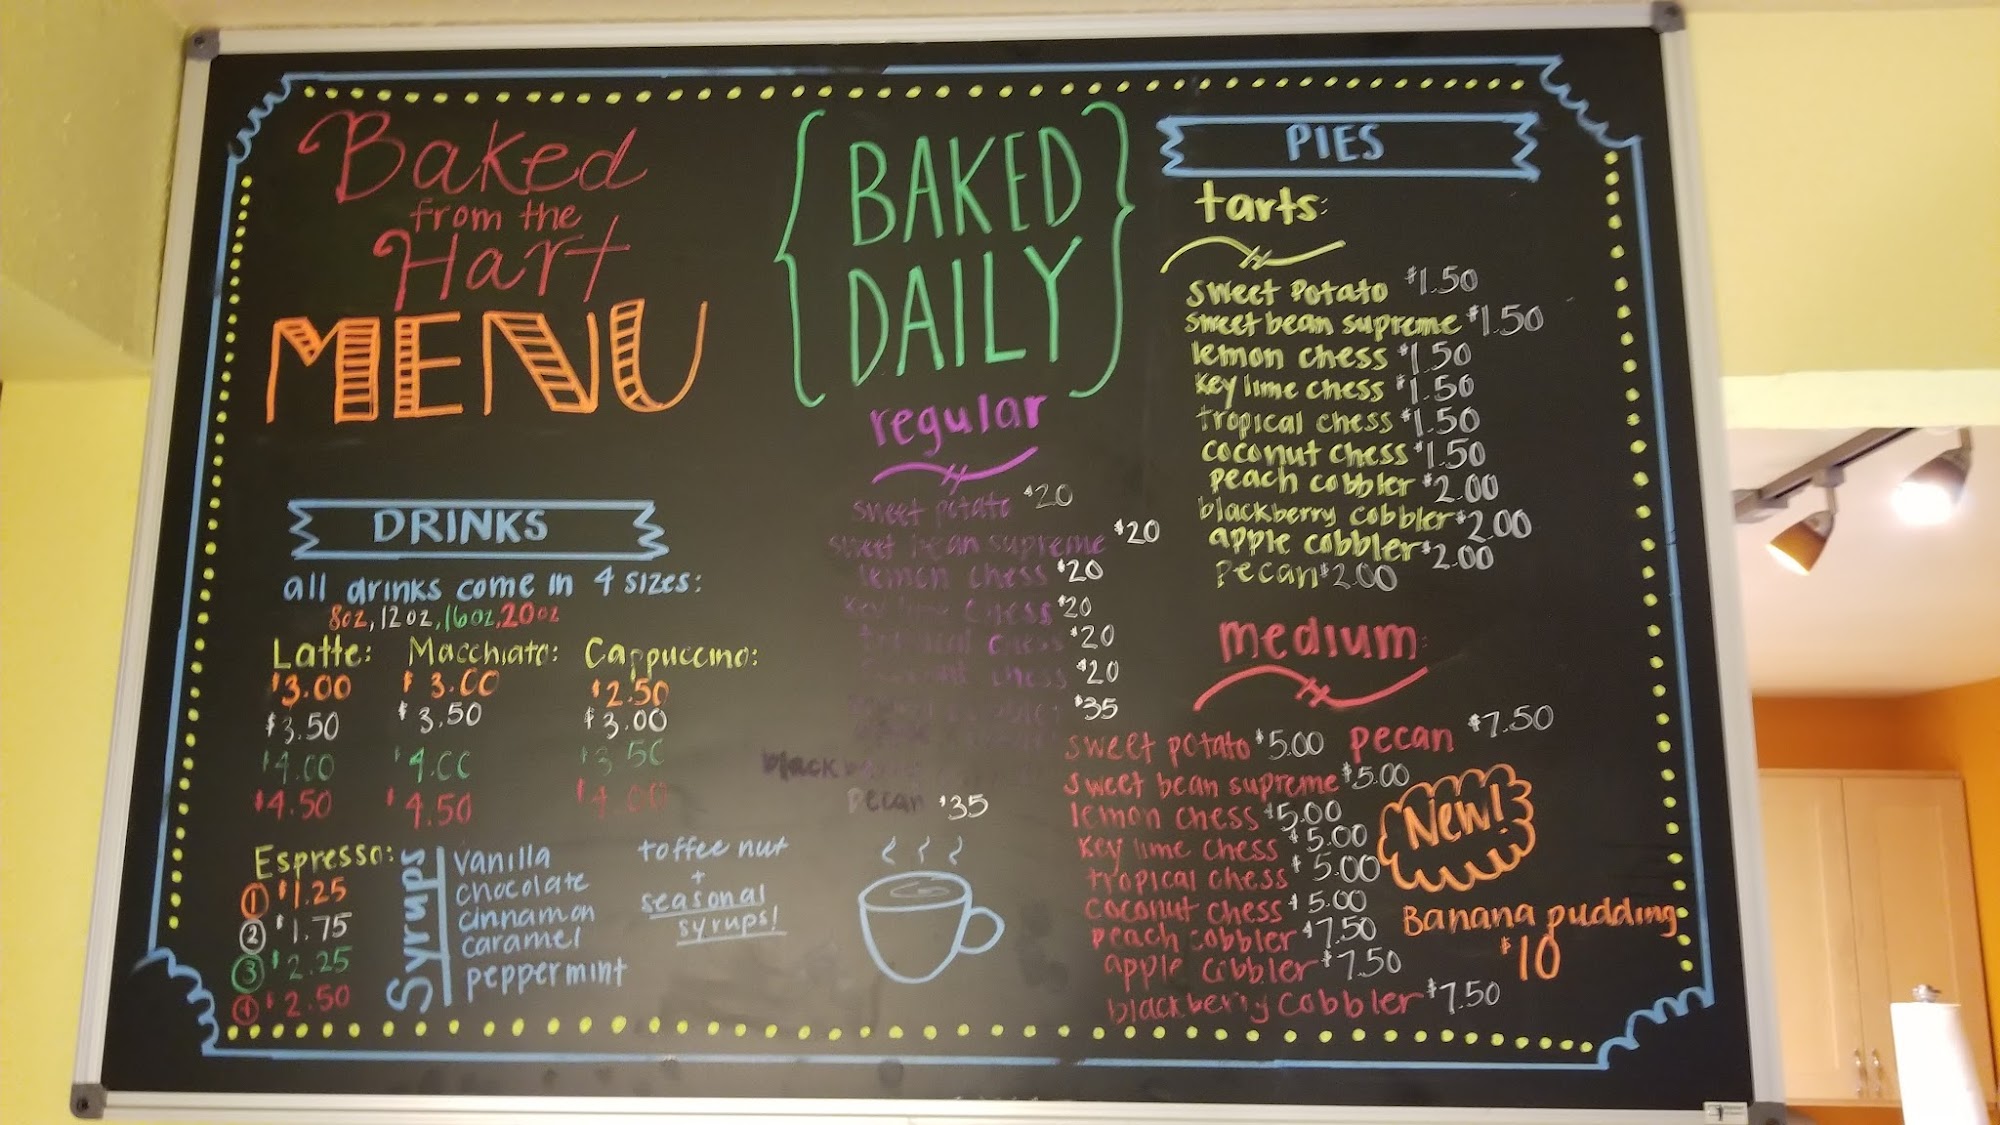 Baked
from the
Hart
MENU
DRINKS
all drinks come in 4 sizes:
8oz, 12oz, 16oz, 20oz
Latte:
$3.00
$3.50
$4.00
$4.50
Macchiato:
$3.00
$3.50
$4.00
$4.50
Cappuccino:
$2.50
$3.00
$3.50
$4.00
Espresso:
1 $1.25
2 $1.75
3 $2.25
4 $2.50
Syrups
vanilla
chocolate
cinnamon
caramel
peppermint
toffee nut
+
seasonal
syrups!
BAKED
DAILY
regular
sweet potato $20
sweet bean supreme $20
lemon chess $20
key lime chess $20
tropical chess $20
chess $20
$35
pecan $35
PIES
tarts:
sweet potato $1.50
sweet bean supreme $1.50
lemon chess $1.50
key lime chess $1.50
tropical chess $1.50
coconut chess $1.50
peach cobbler $2.00
blackberry cobbler $2.00
apple cobbler $2.00
pecan $2.00
medium:
sweet potato $5.00
sweet bean supreme $5.00
lemon chess $5.00
key lime chess $5.00
tropical chess $5.00
coconut chess $5.00
peach cobbler $7.50
apple cobbler $7.50
blackberry cobbler $7.50
pecan $7.50
New!
Banana pudding
$10